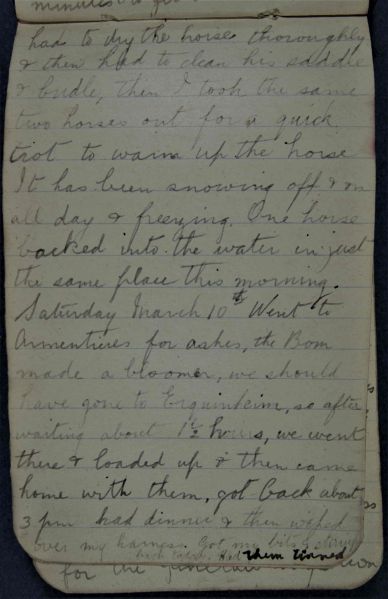 minutes to
had to dry the horse thoroughly
& then had to clean his saddle
& bridle, then I took the same
two horses out for a quick
trot to warm up the horse
It has been snowing off & on
all day & freezing. One horse
backed into the water in just
the same place this morning.
Saturday March 10th Went to
Armentieres for ashes, the Bom
made a bloomer, we should
have gone to Erquinheim, so after
waiting about 1½ hours, we went
there & loaded up & then came
home with them, got back about
3 pm had dinner & then wiped
over my harness. Got my bits &
them tinned
for the general